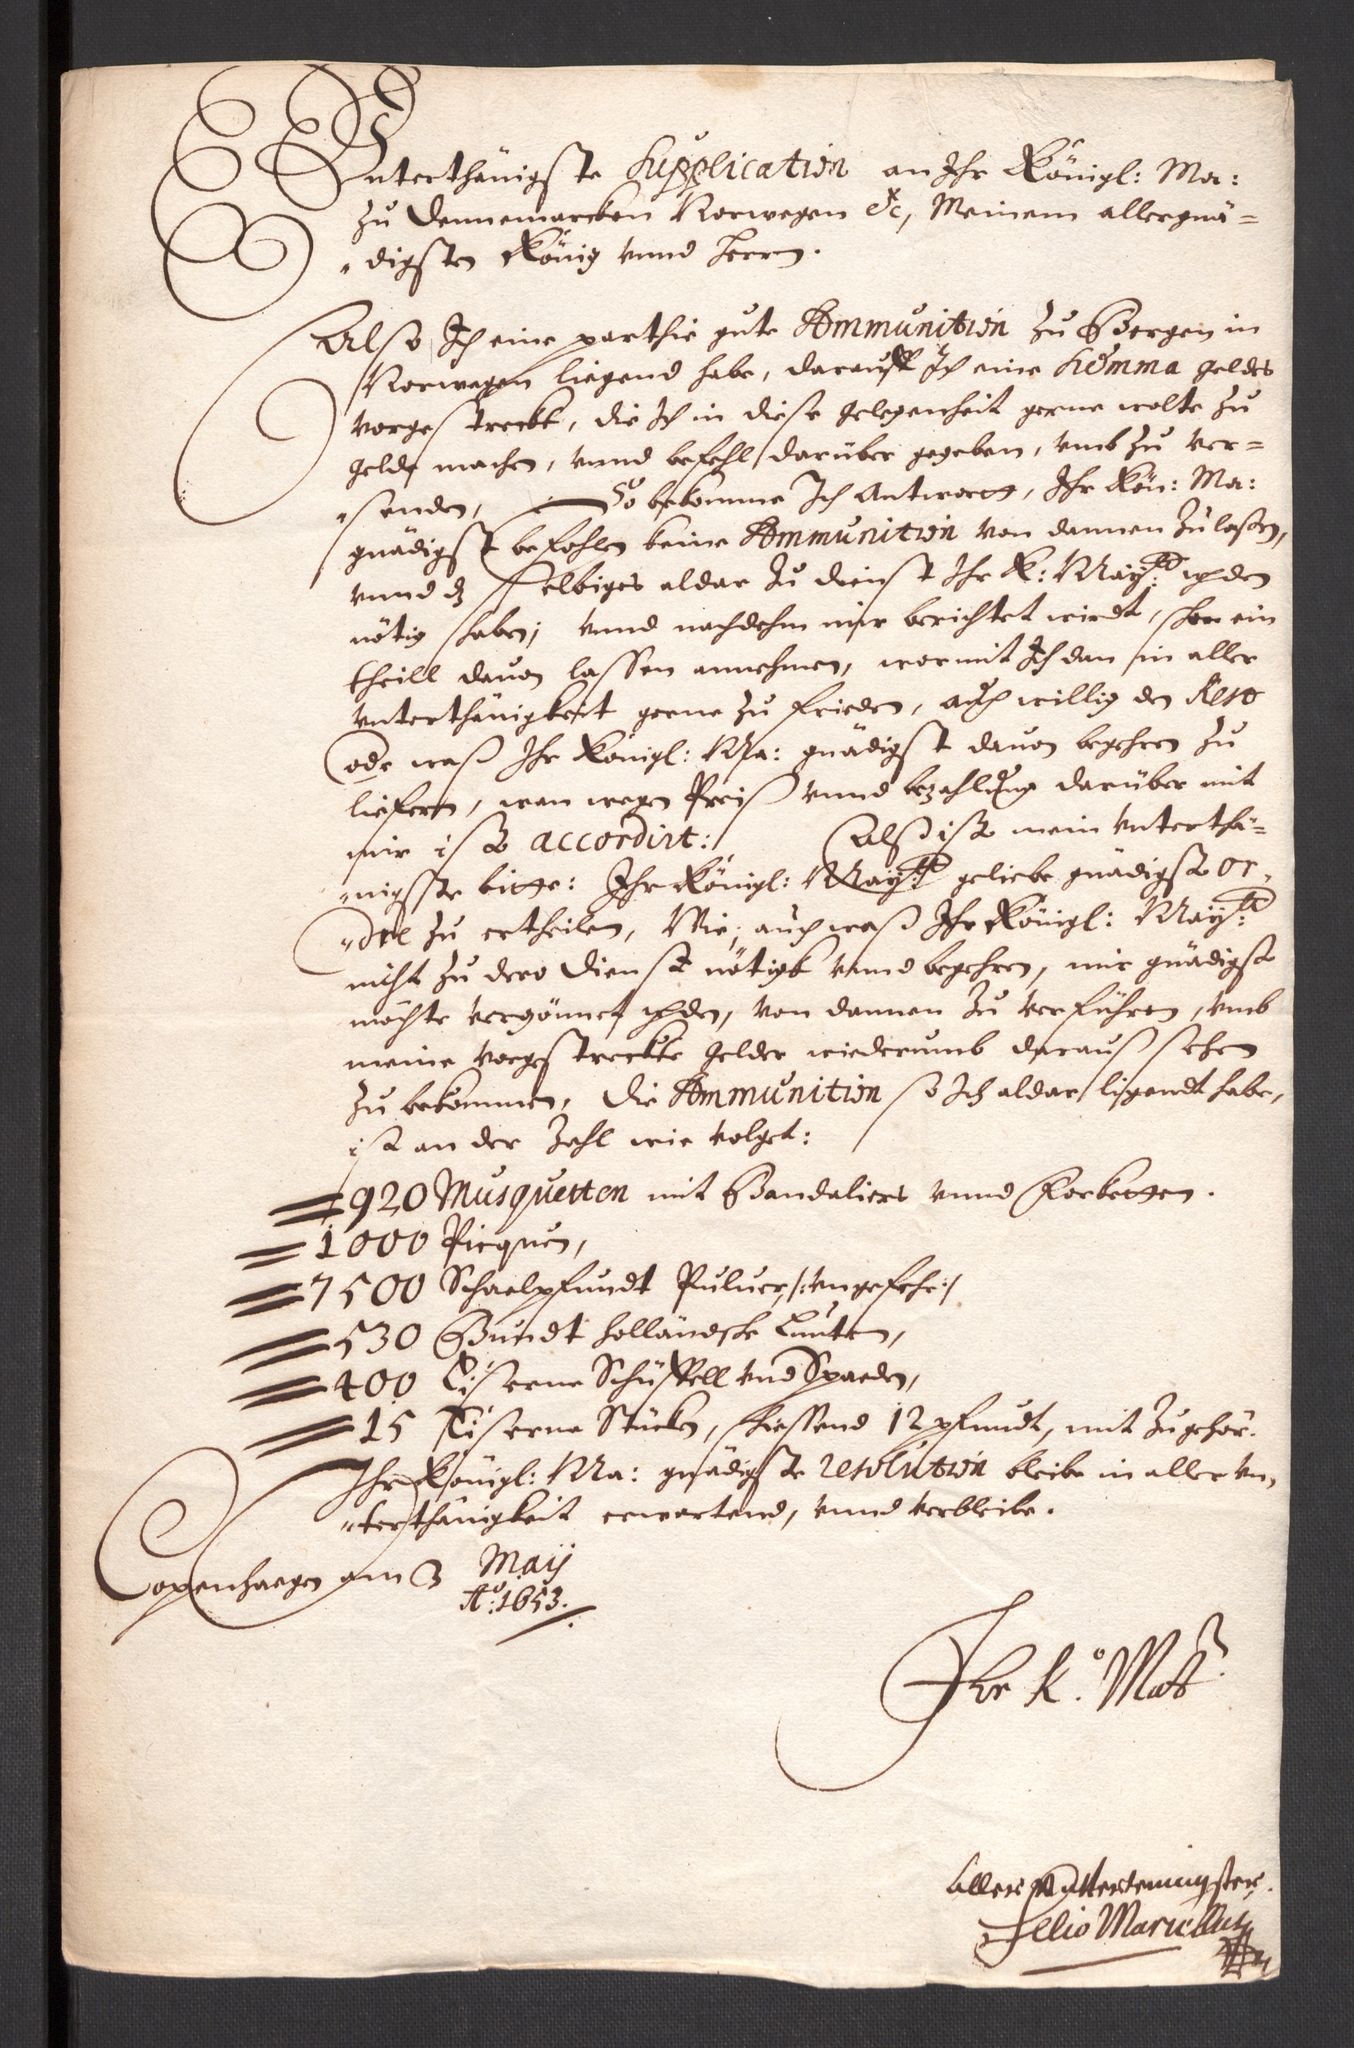 Unterthänigste Supplication an Ihr Königl: Ma:
zu Dennemarcken Norwegen &c, Meinem allergnä=
"digsten König vnnd Herrn.
Also Ich eine parthie gute Ammunition zu Bergen in
Norwegen liegend habe, darauff Ich eine Somma geldes
vorgestreckt, die Ich in diese gelegenheit gerne wolte zu
gelde machen, vnnd befehl darüber gegeben, vmb zu ver=
senden, So bekomme Ich Antwortt, Ihr Kön: Ma:
gnädigst befohlen keine Ammunition von dannen zu laßen,
vnnd dz selbiges aldar zu dienst Ihr K: Maytt: werden
nötig haben; vnnd nachdehm mir berichtet wirdt, schon ein
theill dauon lassen annehmen, wormit Ich dan in aller
vnterthänigkeit gerne zu frieden, auch willig den Rest
oder waß Ihr Königl: Ma: gnädigst dauon begehren zu
liefern, wan wegen Preiß vnnd bezahlung darüber mit
mir ist accordirt: Alß ist mein vnterthä=
"nigste bitte: Ihr Königl: Maytt: geliebe gnädigst or,
"dre zu ertheilen, Wie, auch waß Ihr Königl: Maytt:
nicht zu dero dienst nötigk vnnd begehren, mir gnädigst
möchte vergönnet werden, von dannen zu verführen, vmb
meine vorgestreckte gelder wiederumb darauß sehen
zu bekommen, Die Ammunition so Ich aldar ligendt habe,
ist an der Zahl wie volget:
920 Musquetten mit Bandaliers vnnd Forketten.
1000 Picquen,
7500 Schaelpfundt Puluer, /: vngefehr :/
530 Bundt holländsche Lunten,
400 Eiserne Schüffell vnd Spaeden,
15 Eiserne Stücken, schiessend 12 pfundt, mit Zugehör.
Ihr Königl: Ma: gnädigste resolution bleibe in aller vn,
"terthänigkeit erwartend, vnnd verbleibe.
Copenhaegen am 3 Maij
Ao: 1653.
Ihr K. Matt
aller vnterteningster
Selio Marselius